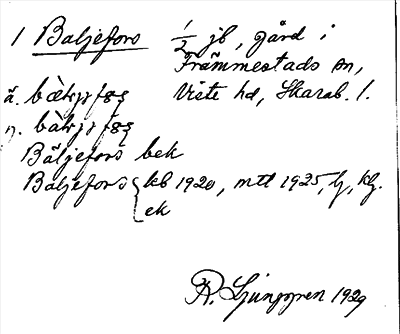 1 Baljefors ½ jb, gård i
Främmestads sn,
Viste hd, Skarab. l.
ä.
y.
Bäljefors bek
Baljefors kb 1920, mtl 1925, lj, kg.
ek
R. Ljunggren 1929